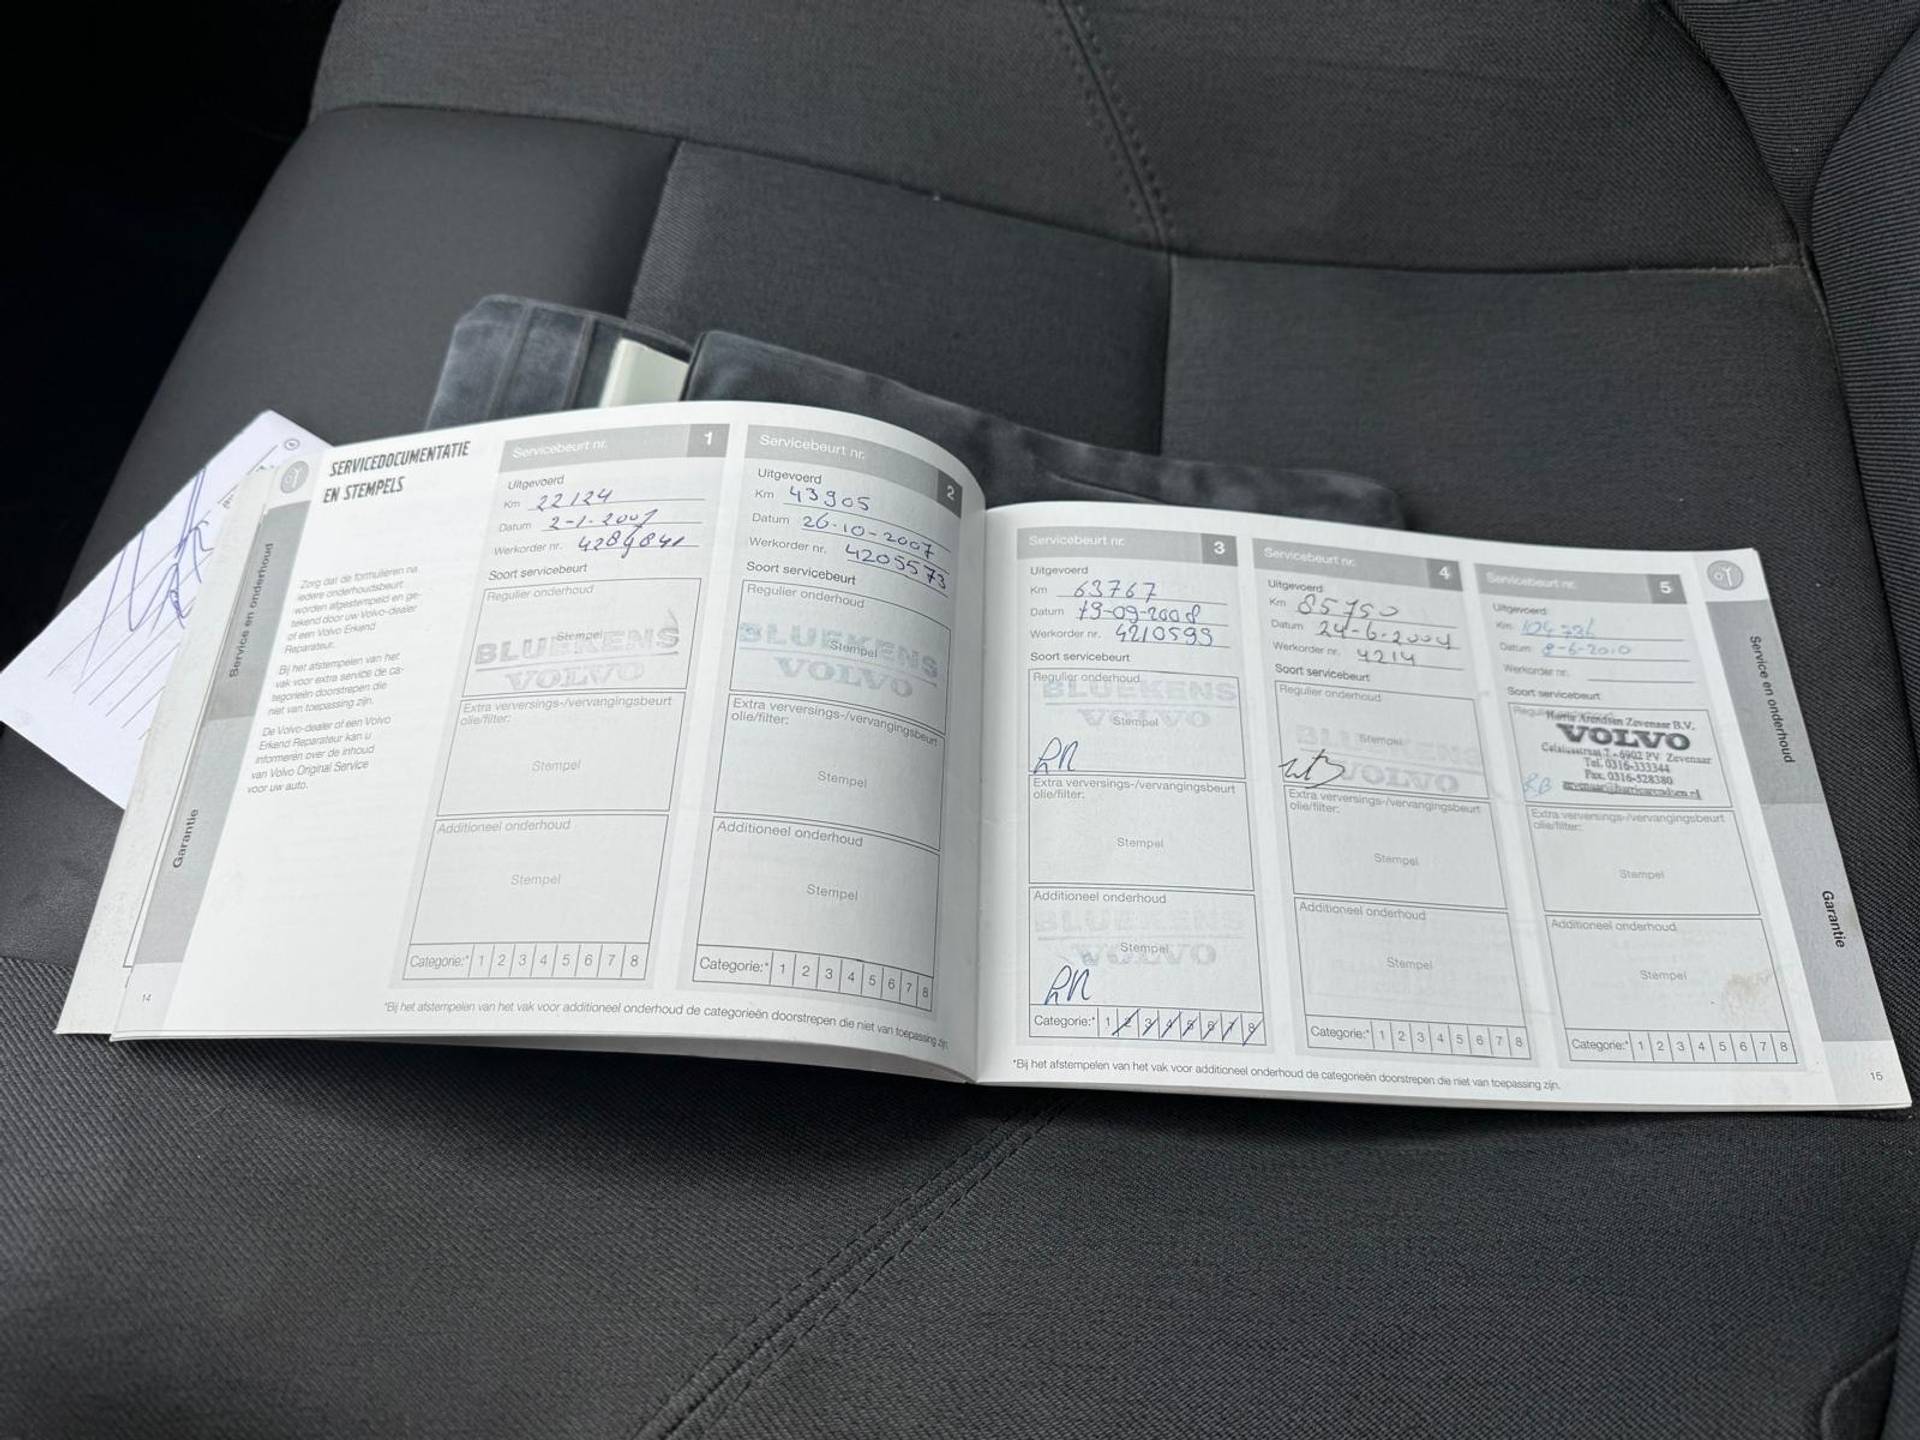 SERVICEDOCUMENTATIE
EN STEMPELS
Zorg dat de formulieren na
iedere onderhoudsbeurt
worden afgestempeld en ge-
tekend door uw Volvo-dealer
of een Volvo Erkend
Reparateur.
Bij het afstempelen van het
vak voor extra service de ca-
tegorieën doorstrepen die
niet van toepassing zijn.
De Volvo-dealer of een Volvo
Erkend Reparateur kan u
informeren over de inhoud
van Volvo Original Service
voor uw auto.
Service en onderhoud
Garantie
14
Servicebeurt nr. 1
Uitgevoerd
Km 22124
Datum 2-1-2007
Werkorder nr.
Soort servicebeurt
Regulier onderhoud
Stempel
BLUEKENS
VOLVO
Extra verversings-/vervangingsbeurt
olie/filter:
Stempel
Additioneel onderhoud
Stempel
Categorie:* 1 2 3 4 5 6 7 8
Servicebeurt nr. 2
Uitgevoerd
Km 43905
Datum 26-10-2007
Werkorder nr. 4205573
Soort servicebeurt
Regulier onderhoud
BLUEKENS
Stempel
VOLVO
Extra verversings-/vervangingsbeurt
olie/filter:
Stempel
Additioneel onderhoud
Stempel
Categorie:* 1 2 3 4 5 6 7 8
*Bij het afstempelen van het vak voor additioneel onderhoud de categorieën doorstrepen die niet van toepassing zijn.
Servicebeurt nr. 3
Uitgevoerd
Km 63767
Datum 19-09-2008
Werkorder nr. 4210599
Soort servicebeurt
Regulier onderhoud
BLUEKENS
VOLVO
Stempel
Extra verversings-/vervangingsbeurt
olie/filter:
Stempel
Additioneel onderhoud
BLUEKENS
Stempel
VOLVO
Categorie:* 1 2 3 4 5 6 7 8
Servicebeurt nr. 4
Uitgevoerd
Km 85150
Datum 24-6-2009
Werkorder nr. 4214
Soort servicebeurt
Regulier onderhoud
Stempel
BLUEKENS
VOLVO
Extra verversings-/vervangingsbeurt
olie/filter:
Stempel
Additioneel onderhoud
Stempel
Categorie:* 1 2 3 4 5 6 7 8
Servicebeurt nr. 5
Uitgevoerd
Km
Datum 8-6-2010
Werkorder nr.
Soort servicebeurt
Harrie Arendsen Zevenaar B.V.
VOLVO
7 - 6902 PV Zevenaar
Tel. 0316-333344
Fax. 0316-528380
zevenaar@harriearendsen.nl
Extra verversings-/vervangingsbeurt
olie/filter:
Stempel
Additioneel onderhoud
Stempel
Categorie:* 1 2 3 4 5 6 7 8
*Bij het afstempelen van het vak voor additioneel onderhoud de categorieën doorstrepen die niet van toepassing zijn.
Service en onderhoud
Garantie
15